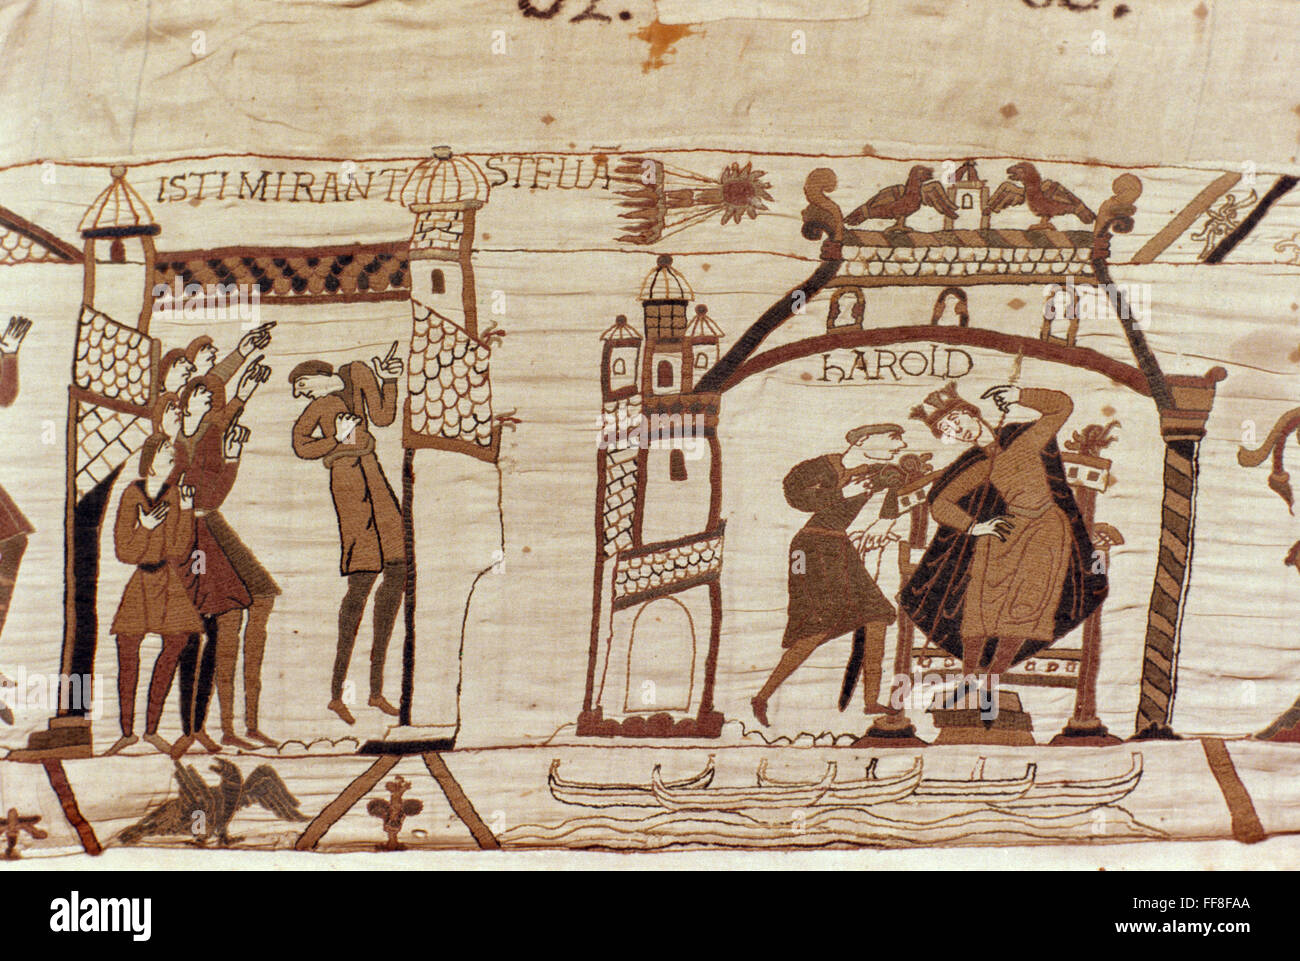 ISTI MIRANT STELLA
HAROLD
alamy
Image ID: FF8FAA
www.alamy.com